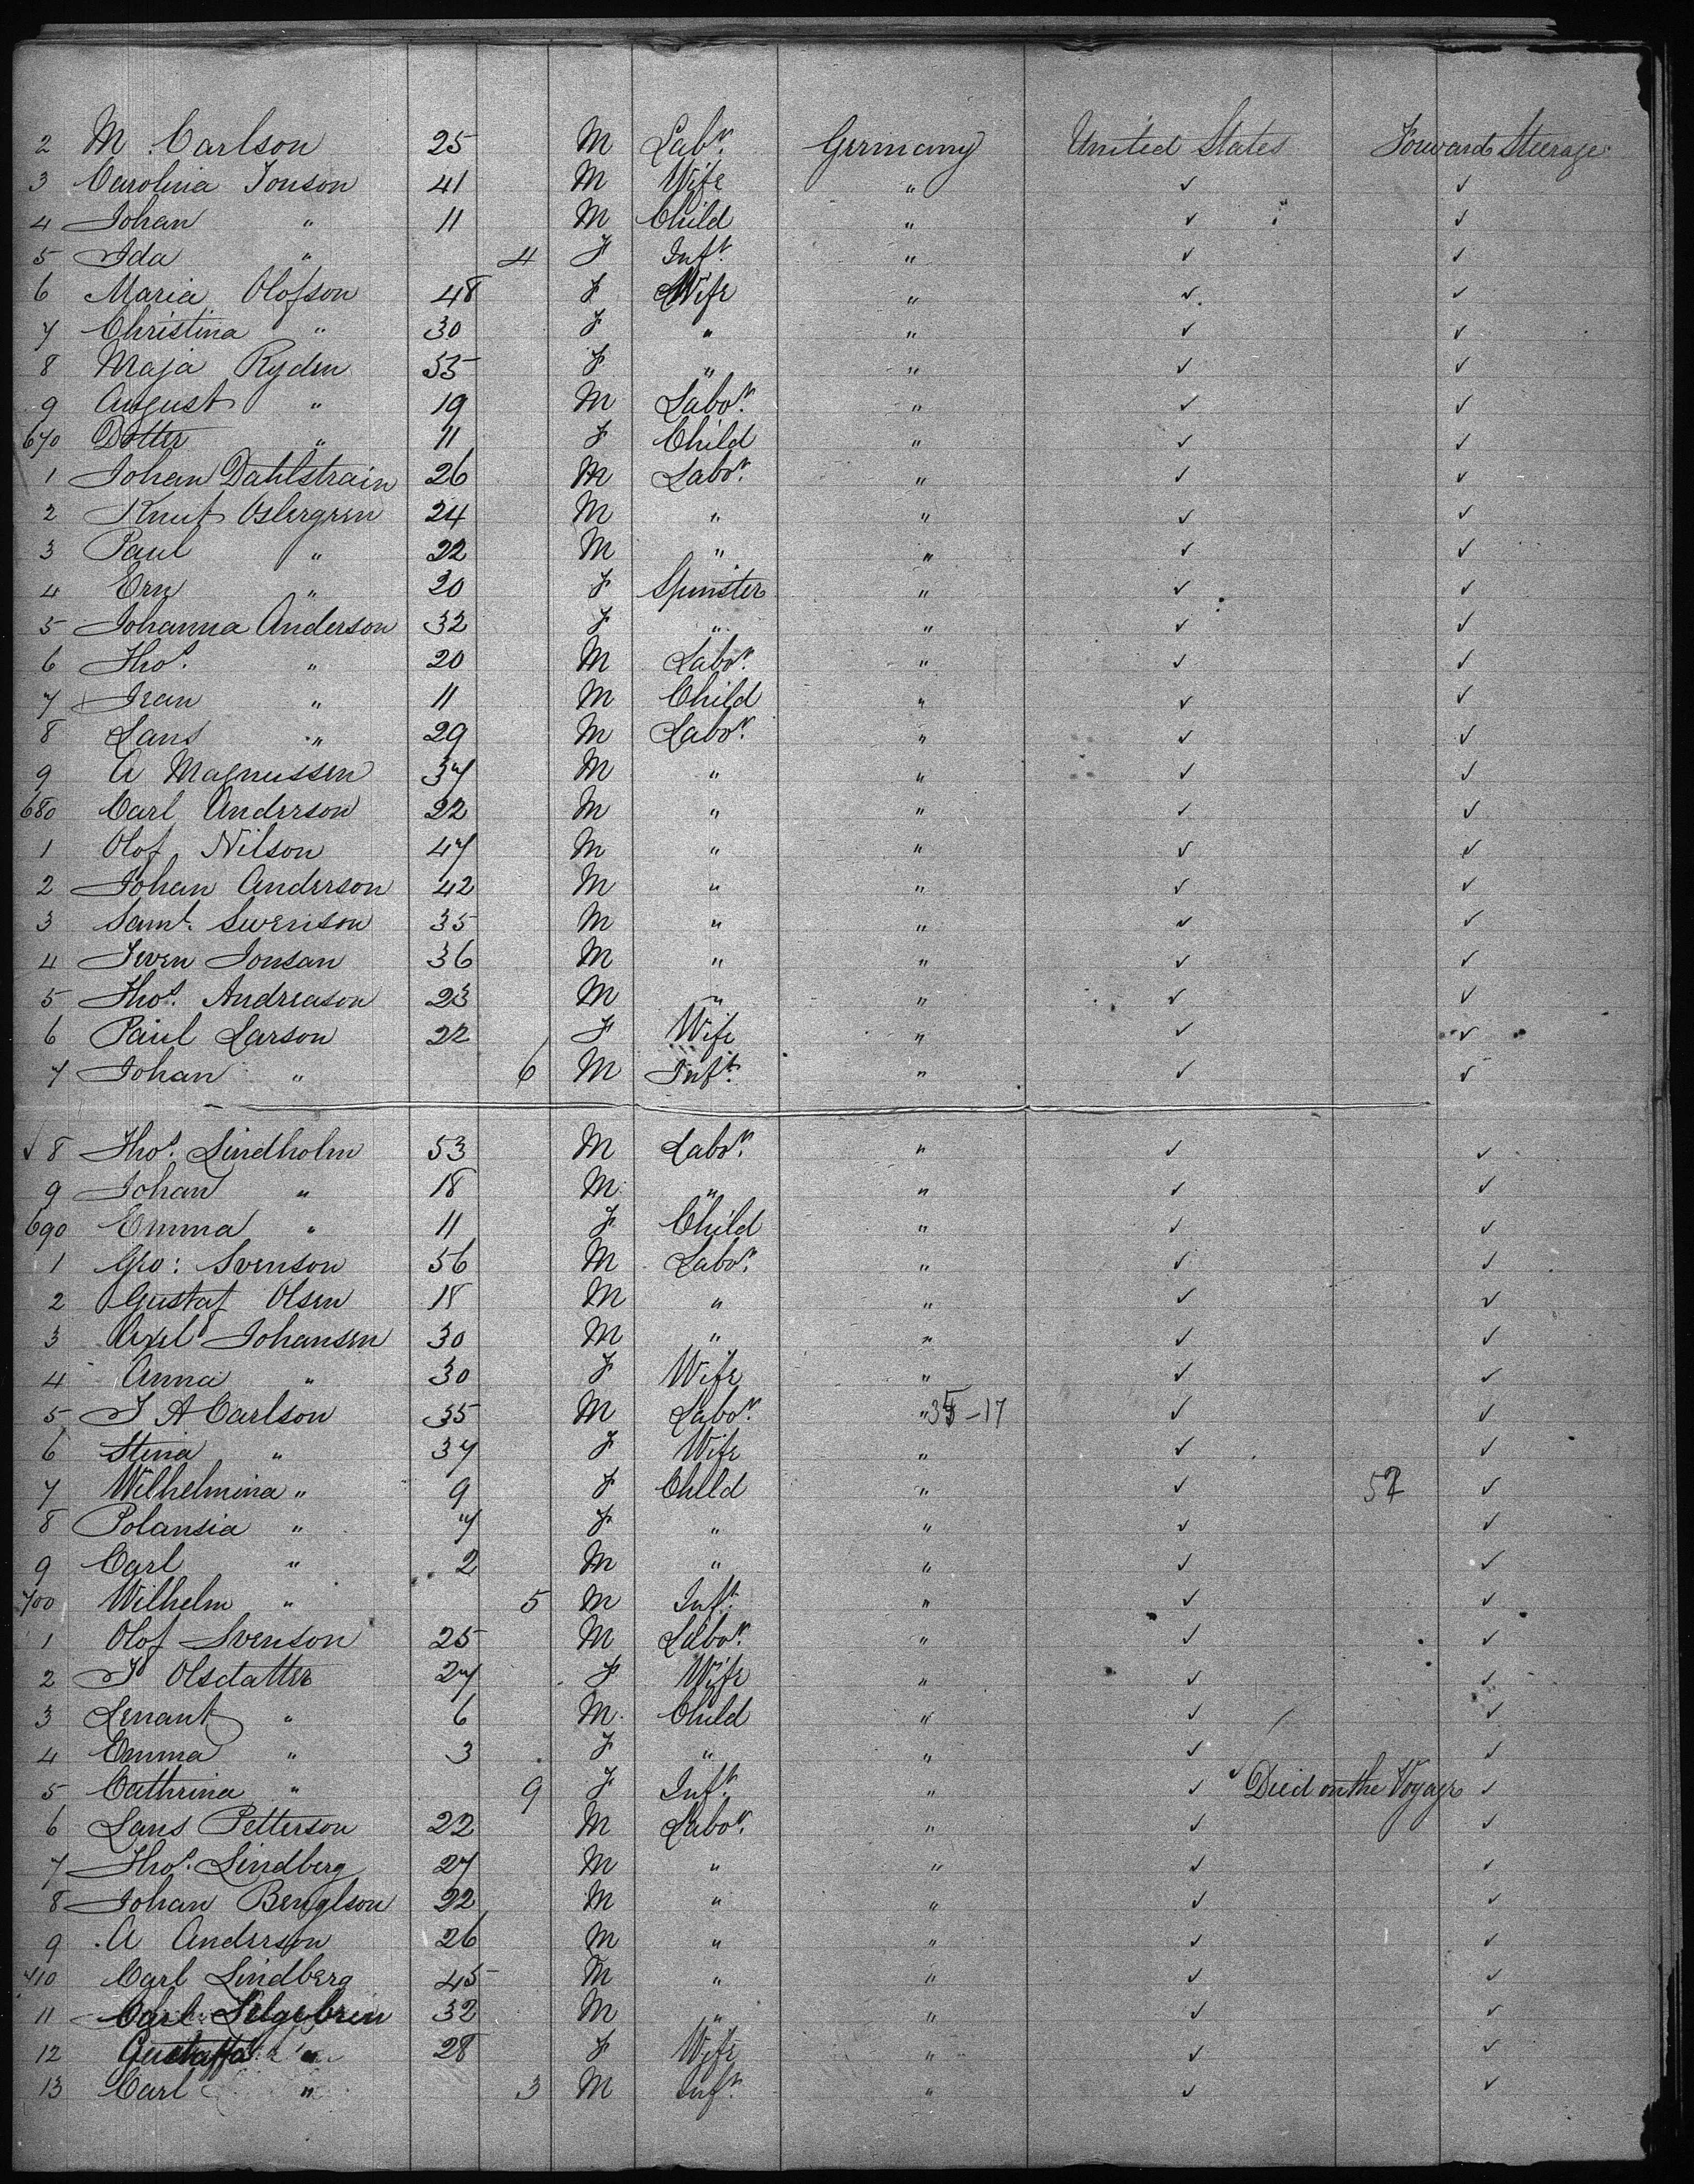 2 M Carlson 25 M Labr. Germany United States Forward Steerage
3 Carolina Jonson 41 M Wife " ✓ ✓
4 Johan " 11 M Child " ✓ ✓
5 Ida " 4 F Inft. " ✓ ✓
6 Maria Olofson 48 F Wife " ✓ ✓
7 Christina " 30 F " " ✓ ✓
8 Maja Ryden 55 F " " ✓ ✓
9 August " 19 M Labor. " ✓ ✓
670 Dotter " 11 F Child " ✓ ✓
1 Johan Dahlstrain 26 M Labor. " ✓ ✓
2 Knut Oslergren 24 M " " ✓ ✓
3 Paul " 22 M " " ✓ ✓
4 Ern " 20 F Spinster " ✓ ✓
5 Johanna Anderson 32 F " " ✓ ✓
6 Thos. " 20 M Labor. " ✓ ✓
7 Jean " 11 M Child " ✓ ✓
8 Lans " 29 M Labor. " ✓ ✓
9 A Magnussen 37 M " " ✓ ✓
680 Carl Anderson 22 M " " ✓ ✓
1 Olof Nilson 47 M " " ✓ ✓
2 Johan Anderson 42 M " " ✓ ✓
3 Saml. Swenson 35 M " " ✓ ✓
4 Jven Jonsan 36 M " " ✓ ✓
5 Thos. Andreason 23 M " " ✓ ✓
6 Paul Larson 22 F Wife " ✓ ✓
7 Johan " 6 M Inft. " ✓ ✓
✓ 8 Thos. Lindholm 53 M Labor. " ✓ ✓
9 Johan " 18 M " " ✓ ✓
690 Emma " 11 F Child " ✓ ✓
1 Geo: Svenson 56 M Labor. " ✓ ✓
2 Gustaf Olsen 18 M " " ✓ ✓
3 Axel Johansen 30 M " " ✓ ✓
4 Anna " 30 F Wife " ✓ ✓
5 J A Carlson 35 M Labor. " 35-17 ✓ ✓
6 Stina " 37 F Wife " ✓ ✓
7 Wilhelmina " 9 F Child " ✓ ✓
8 Polansia " 7 F " " ✓ ✓
9 Carl " 2 M " " ✓ ✓
700 Wilhelm " 5 M Inft. " ✓ ✓
1 Olof Svenson 25 M Labor. " ✓ ✓
2 J Olsdatter 27 F Wife " ✓ ✓
3 Lenant " 6 M Child " ✓ ✓
4 Emma " 3 F " " ✓ ✓
5 Cathrina " 9 F Inft. " ✓ ✓ Died on the Voyage ✓
6 Lans Petterson 22 M Labor. " ✓ ✓
7 Thos. Lindberg 27 M " " ✓ ✓
8 Johan Benglson 22 M " " ✓ ✓
9 A Anderson 26 M " " ✓ ✓
710 Carl Lindberg 45 M " " ✓ ✓
11 Carl Lilgebren 32 M " " ✓ ✓
12 Gustaffa " 28 F Wife " ✓ ✓
13 Carl " 3 M Inft. " ✓ ✓